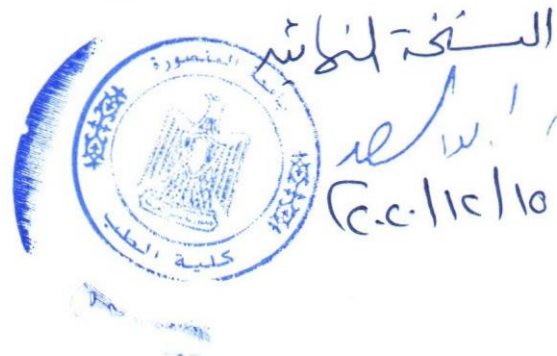 النسخة النهائية
٢٠٢٠/١٢/١٥
جامعة المنصورة
كلية الطب